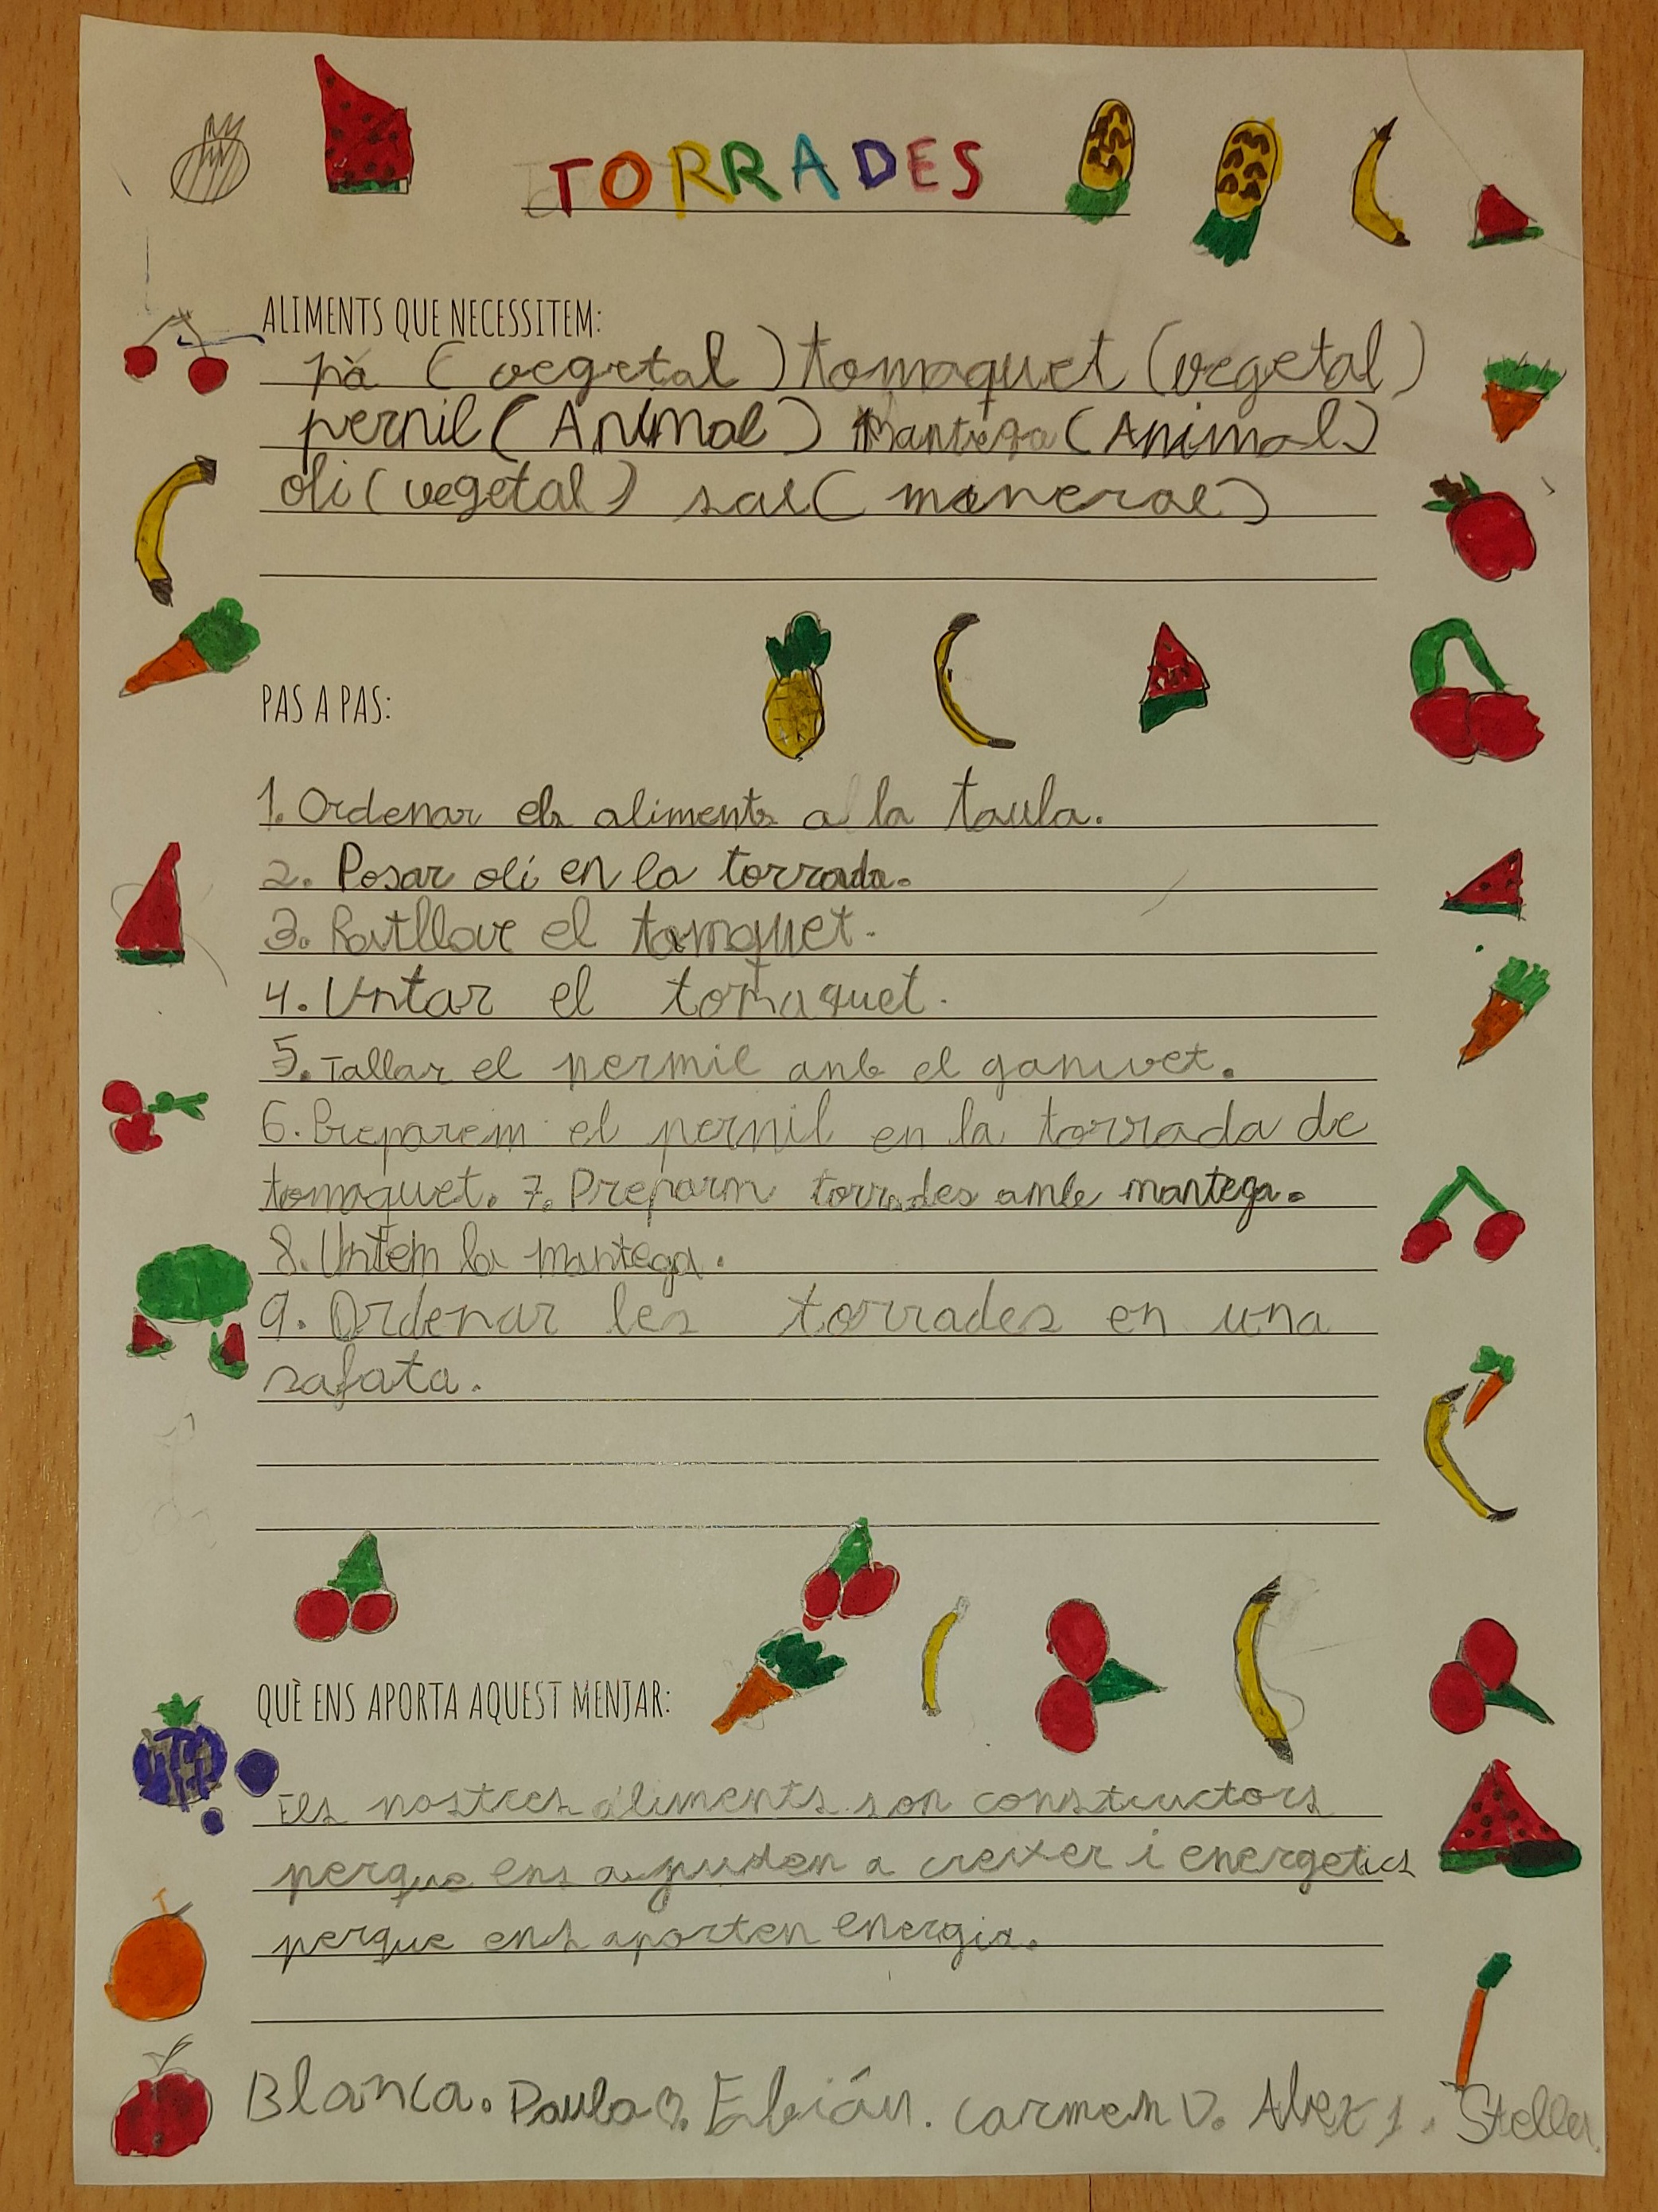 TORRADES
ALIMENTS QUE NECESSITEM:
pà (vegetal) tomaquet (vegetal)
pernil (Animal) Mantega (Animal)
oli (vegetal) sal (mineral)
PAS A PAS:
1. Ordenar els aliments a la taula.
2. Posar oli en la torrada.
3. Ratllar el tomquet.
4. Untar el tomaquet.
5. Tallar el pernil anb el ganivet.
6. Preparem el pernil en la torrada de
tomaquet. 7. Preparm torrades amb mantega.
8. Untem la mantega.
9. Ordenar les torrades en una
safata.
QUÈ ENS APORTA AQUEST MENJAR:
Els nostres aliments son constructors
perque ens ajuden a creixer i energetics
perque ens aporten energia.
Blanca. Paula. Fabián. Carmen V. Alex J. Stella.